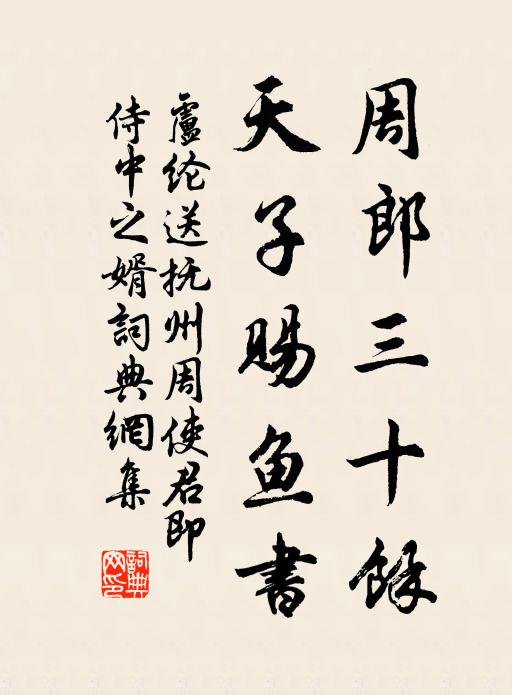 周郎三十餘
天子賜鱼書
盧纶送抚州周使君即
侍中之婿詞典網集
詞典网印